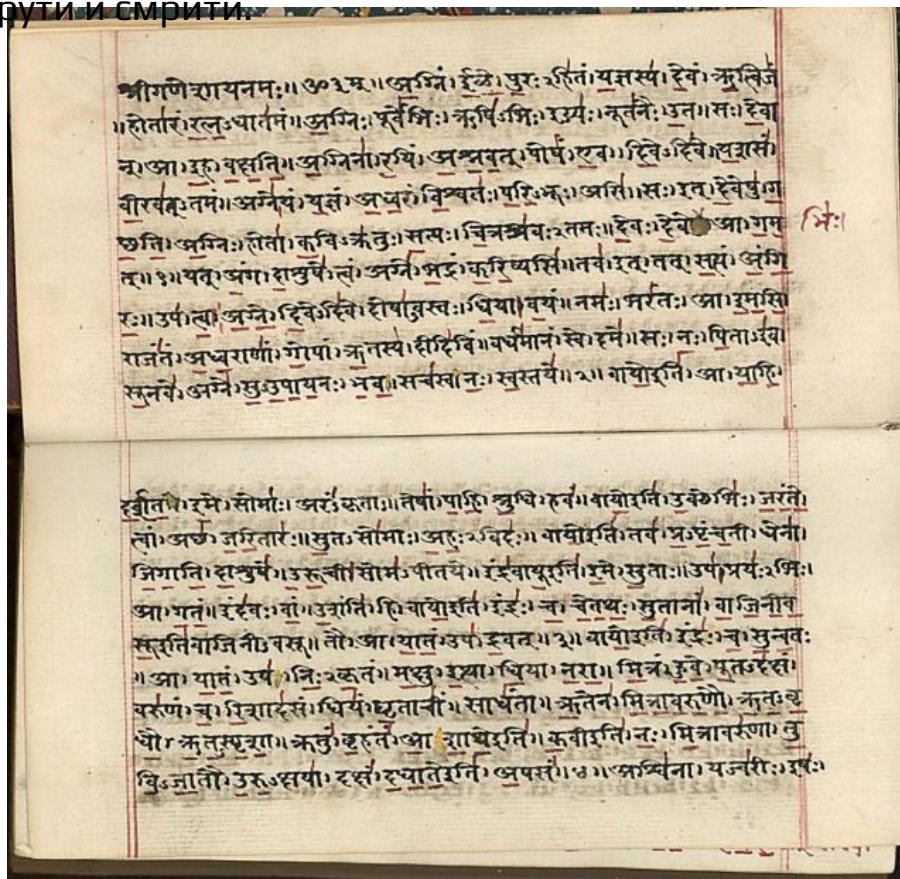 рути и смрити.
श्रीगणेशायनमः॥ॐ३म्॥अग्निं।ईळे।पुरःऽहितं।यज्ञस्य।देवं।ऋत्विजं
॥होतारं।रत्नऽधातमं॥अग्निः।पूर्वेभिः।ऋषिऽभिः।ईड्यः।नूतनैः।उत॥सः।देवा
न्।आ।इह।वक्षति॥अग्निना।रयिं।अश्नवत्।पोषं।एव।दिवेऽदिवे॥यशसं
वीरवत्ऽतमं॥अग्नेयं।यज्ञं।अध्वरं।विश्वतः।परिऽभूः।असि॥सः।इत्।देवेषु।ग
छति।अग्निः।होता।कविऽक्रतुः।सत्यः।चित्रश्रवःऽतमः॥देवः।देवे आ।गम
भिः।
त्॥१॥यत्।अंग।दाशुषे।त्वं।अग्ने।भद्रं।करिष्यसि॥तव।इत्।तत्।सत्यं।अंगि
रः॥उप।त्वा।अग्ने।दिवेऽदिवे।दोषाऽवस्तः।धिया।वयं॥नमः।भरंतः।आ।इमसि
राजंतं।अध्वराणां।गोपां।ऋतस्य।दीदिविं॥वर्धमानं।स्वे।दमे॥सः।नः।पिताऽइव।
सूनवे।अग्ने।सुऽउपायनः।भव॥सचस्व।नः।स्वस्तये॥२॥वायोइति।आ।याहि।
दर्शत।इमे।सोमाः।अरंऽकृताः॥तेषां।पाहि।श्रुधि।हवं॥वायोइति।उक्थेभिः।जरंते।
त्वां।अछ।जरितारः॥सुतऽसोमाः।अहःऽविदः॥वायोइति।तव।प्रऽपृंचती।धेना।
जिगाति।दाशुषे॥उरूची।सोमऽपीतये॥इंद्रवायूइति।इमे।सुताः॥उप।प्रयःऽभिः।
आ।गतं॥इंदवः।वां।उशंति।हि॥वायोइति।इंद्रः।च।चेतथः।सुतानां।वाजिनीव
सूइतिवाजिनीऽवसू॥तौ।आ।यातं।उप।द्रवत्॥३॥वायोइति।इंद्रः।च।सुन्वतः
॥आ।यातं।उप।निःऽकृतं॥मक्षु।इत्था।धिया।नरा॥मित्रं।हुवे।पूतऽदक्षं।
वरुणं।च।रिशादसं॥धियं।घृताचीं।साधंता॥ऋतेन।मित्रावरुणौ।ऋतऽवृ
धौ।ऋतऽस्पृशा॥क्रतुं।बृहंतं।आशाथेइति॥कवीइति।नः।मित्रावरुणा।तु
विऽजातौ।उरुऽक्षया।दक्षं।दधातेइति।अपसं॥४॥अश्विना।यज्वरीः।इषः।